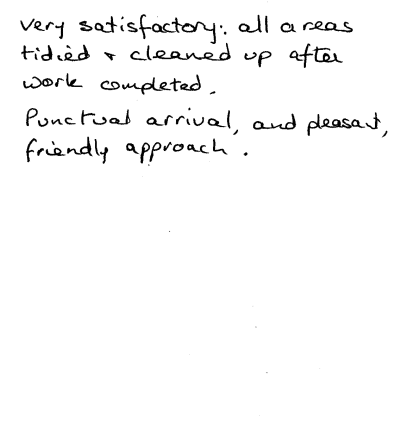 very satisfactory: all areas
tidied & cleaned up after
work completed.
Punctual arrival, and pleasant,
friendly approach.